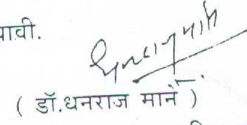 ावी.
( डॉ.धनराज माने )